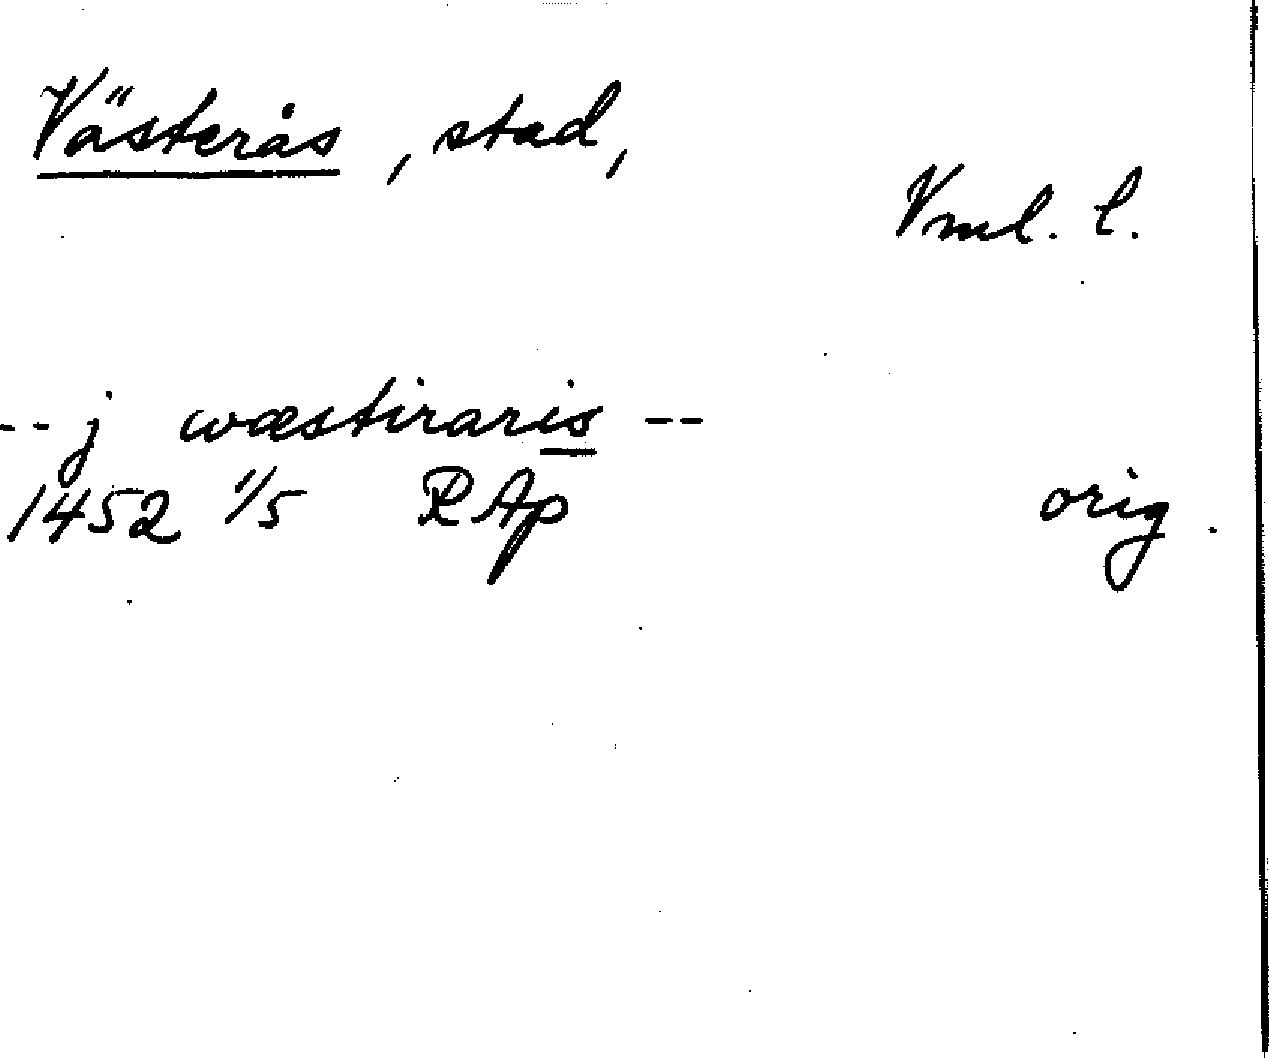 Västerås, stad,
Vml. l.
-- j wæstiraris --
1452 1/5 RAp orig.